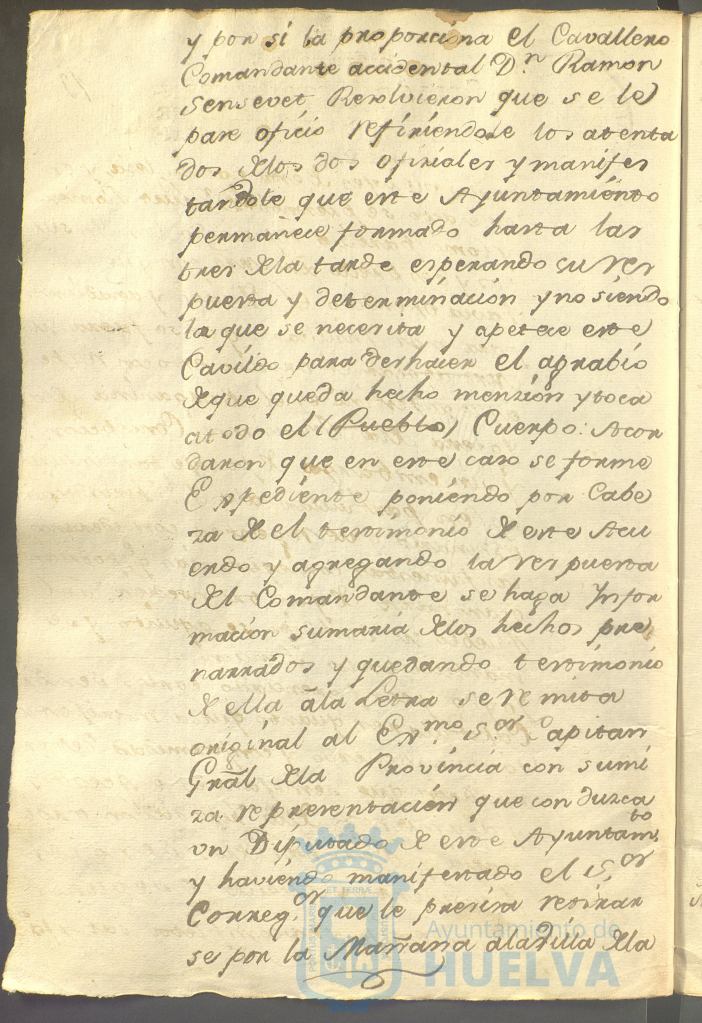 y por si la proporciona el Cavallero
Comandante accidental D.n Ramon
Sensevet Resolvieron que se le
pase oficio refiriendole los atenta
dos de los dos oficiales y manifes
tandole que este Ayuntamiento
permanece formado hasta las
tres de la tarde esperando su res
puesta y determinación y no siendo
la que se necesita y apetece este
Cavildo para deshacer el agrabio
de que queda hecho menzión y toca
a todo el (Pueblo) Cuerpo: Acor
daron que en este caso se forme
Expediente poniendo por Cabe
za de el testimonio de este Acu
erdo y agregando la respuesta
del Comandante se haga Infor
mación sumaria de los hechos pre
narrados y quedando testimonio
de ella a la Letra se remita
original al Ex.mo S.or Capitan
Gral de la Provincia con sumi
za representación que conduzca
un Diputado de este Ayuntam.to
y haviendo manifestado el S.or
Correg.or que le presisa retirar
se por la Mañana a la Villa de la
Ayuntamiento de
HUELVA